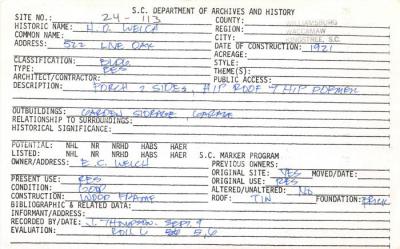 S.C. DEPARTMENT OF ARCHIVES AND HISTORY
SITE NO.: 24-113 COUNTY: WILLIAMSBURG
HISTORIC NAME: H.O. WELCH REGION: WACCAMAW
COMMON NAME: CITY: KINGSTREE, S.C.
ADDRESS: 522 LIVE OAK DATE OF CONSTRUCTION: 1921
ACREAGE:
CLASSIFICATION: BLDG STYLE:
TYPE: RES THEME(S):
ARCHITECT/CONTRACTOR: PUBLIC ACCESS:
DESCRIPTION: PORCH 2 SIDES, HIP ROOF & HIP DORMER
OUTBUILDINGS: GARDEN STORAGE, GARAGE
RELATIONSHIP TO SURROUNDINGS:
HISTORICAL SIGNIFICANCE:
POTENTIAL: NHL NR NRHD HABS HAER
LISTED: NHL NR NRHD HABS HAER S.C. MARKER PROGRAM
OWNER/ADDRESS: E.C. WELCH PREVIOUS OWNERS:
ORIGINAL SITE: YES MOVED/DATE:
PRESENT USE: RES ORIGINAL USE: RES
CONDITION: GOOD ALTERED/UNALTERED: NO
CONSTRUCTION: WOOD FRAME ROOF: TIN FOUNDATION: BRICK
BIBLIOGRAPHIC & RELATED DATA:
INFORMANT/ADDRESS:
RECORDED BY/DATE: J. THOMPSON, SEPT. 9
EVALUATION: ROLL 6 5,6